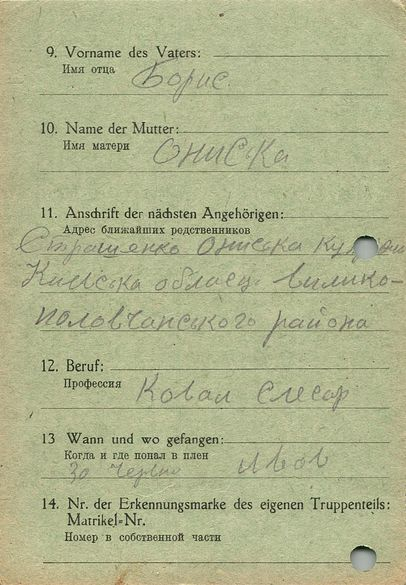 9. Vorname des Vaters:
Имя отца
Борис
10. Name der Mutter:
Имя матери
Ониська
11. Anschrift der nächsten Angehörigen:
Адрес ближайших родственников
Страшенко Ониська
Киïвська вилико-
половчанського района
12. Beruf:
Профессия
Ковал Слесар
13 Wann und wo gefangen:
Когда и где попал в плен
30 Львов
14. Nr. der Erkennungsmarke des eigenen Truppenteils:
Matrikel-Nr.
Номер в собственной части